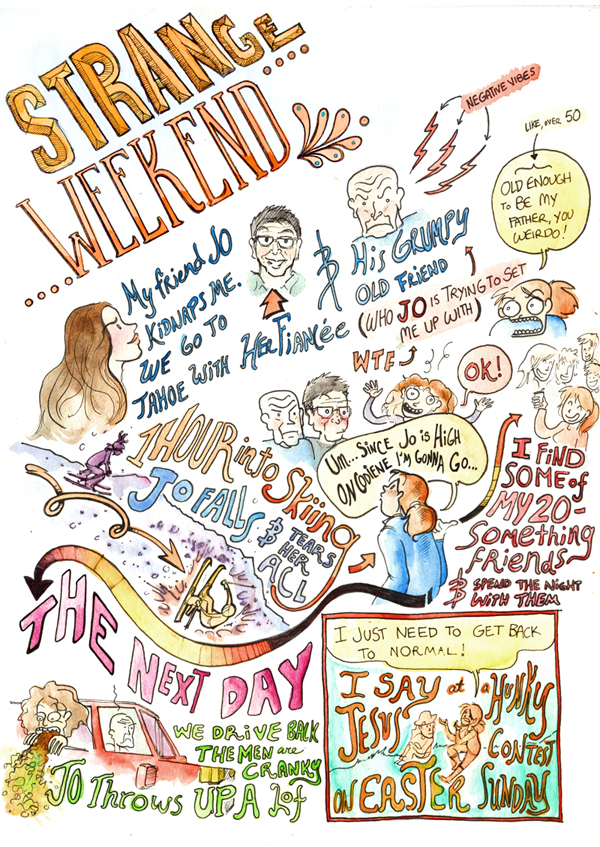 STRANGE
WEEKEND
NEGATIVE VIBES
LIKE, OVER 50
OLD ENOUGH
to BE MY
FATHER, YOU
WEIRDO!
My friend JO
KIDNAPS ME.
WE GO TO
TAHOE WITH
HER FIANCÉE
& HIS GRUMPY
OLD FRIEND
(WHO JO is TRYING TO SET
ME UP WITH)
WTF
OK!
1 HOUR into Skiing
JO FALLS
& TEARS
HER
ACL
Um... SINCE JO is HIGH
ON CODIENE I'M GONNA GO...
I FIND
SOME of
MY 20-
Something
friends
& SPEND THE NIGHT
WITH THEM
THE NEXT DAY
WE DRIVE BACK
THE MEN are
CRANKY
JO Throws UP A Lot
I JUST NEED TO GET BACK
TO NORMAL!
I SAY at a HUNKY
JESUS CONTEST
ON EASTER SUNDAY